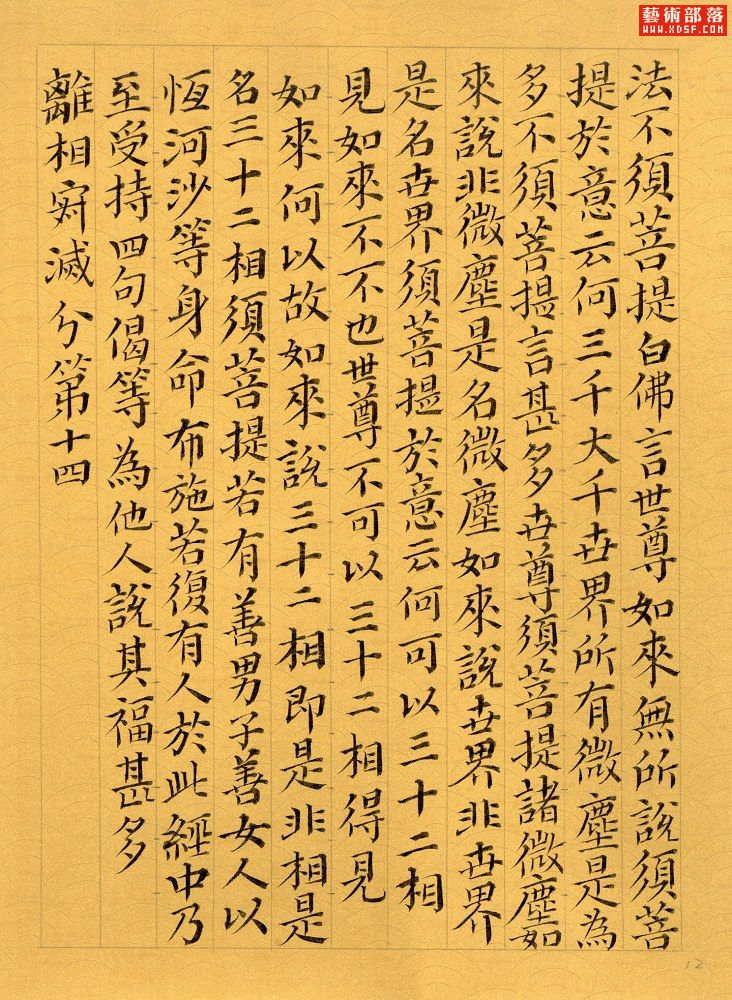 藝術部落
WWW.XDSF.COM
法不須菩提白佛言世尊如來無所說須菩
提於意云何三千大千世界所有微塵是為
多不須菩提言甚多世尊須菩提諸微塵如
來說非微塵是名微塵如來說世界非世界
是名世界須菩提於意云何可以三十二相
見如來不不也世尊不可以三十二相得見
如來何以故如來說三十二相即是非相是
名三十二相須菩提若有善男子善女人以
恆河沙等身命布施若復有人於此經中乃
至受持四句偈等為他人說其福甚多
離相寂滅分第十四
12